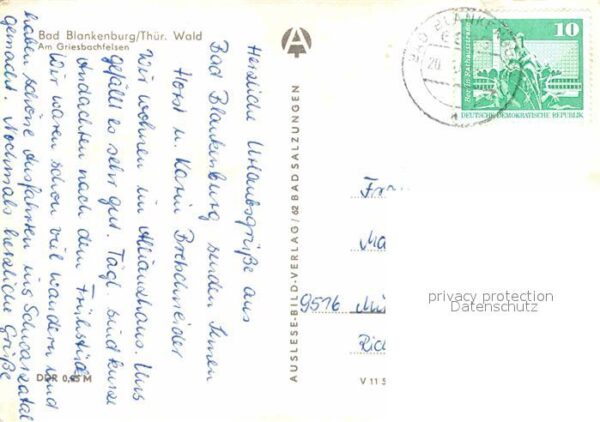 Bad Blankenburg/Thür. Wald
Am Griesbachfelsen
Herzliche Urlaubsgrüße aus
Bad Blankenburg senden Ihnen
Horst u. Karin Bretschneider
Wir wohnen im Allianzhaus. Uns
gefällt es sehr gut. Tägl. sind kurze
Andachten nach dem Frühstück
Wir waren schon viel wandern und
haben schöne Ausfahrten ins Schwarzatal
gemacht. Nochmals herzliche Grüße
DDR 0,25 M
AUSLESE-BILD-VERLAG / 62 BAD SALZUNGEN
V 11 5
BAD BLANKENBURG
20
10
DEUTSCHE DEMOKRATISCHE REPUBLIK
9516
privacy protection
Datenschutz